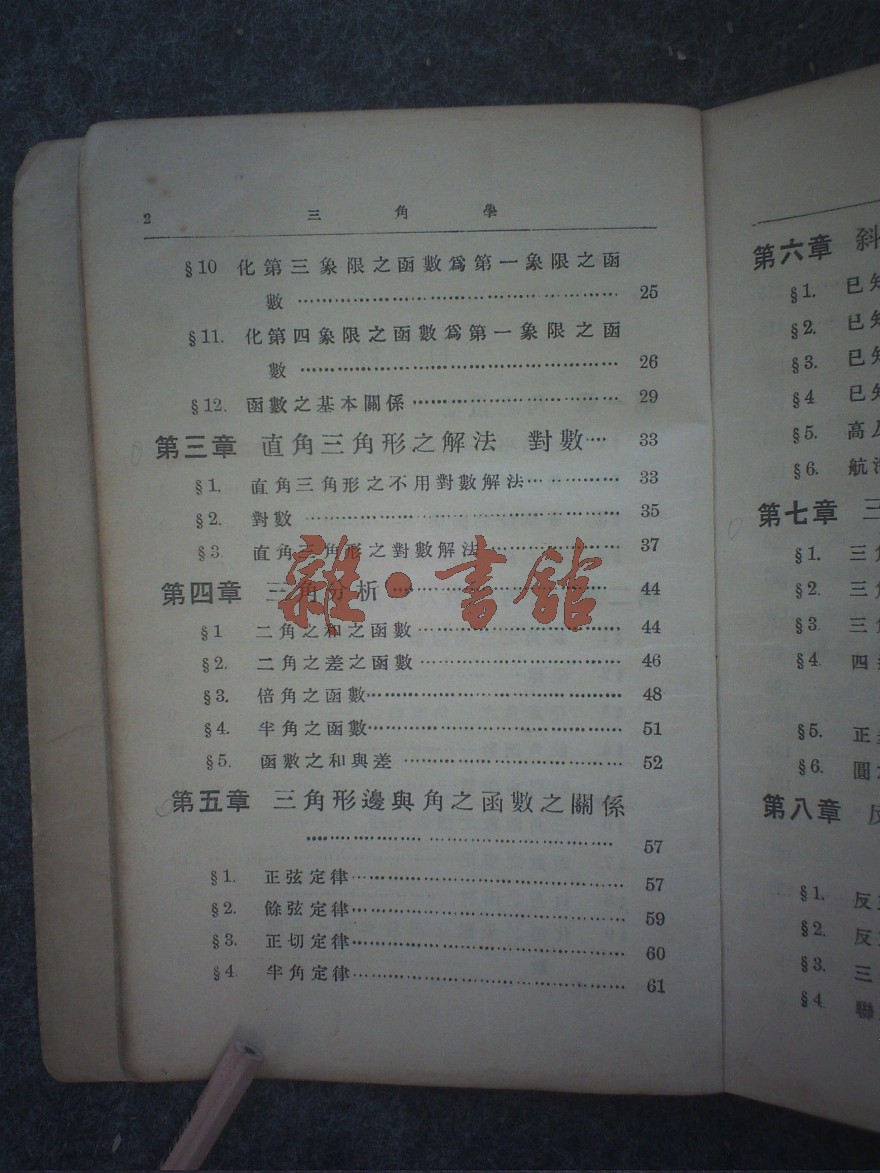 2 三角學
§10 化第三象限之函數爲第一象限之函
數 …… 25
§11. 化第四象限之函數爲第一象限之函
數 …… 26
§12. 函數之基本關係 …… 29
第三章 直角三角形之解法 對數 … 33
§1. 直角三角形之不用對數解法 …… 33
§2. 對數 …… 35
§3. 直角三角形之對數解法 …… 37
第四章 三角分析 …… 44
§1 二角之和之函數 …… 44
§2. 二角之差之函數 …… 46
§3. 倍角之函數 …… 48
§4. 半角之函數 …… 51
§5. 函數之和與差 …… 52
第五章 三角形邊與角之函數之關係
…… 57
§1. 正弦定律 …… 57
§2. 餘弦定律 …… 59
§3. 正切定律 …… 60
§4. 半角定律 …… 61
雜·書館
第六章 斜
§1. 已知
§2. 已知
§3. 已知
§4 已知
§5. 高及
§6. 航海
第七章 三
§1. 三角
§2. 三角
§3. 三
§4. 四
§5. 正
§6. 圓
第八章 反
§1. 反
§2. 反
§3. 三
§4 聯